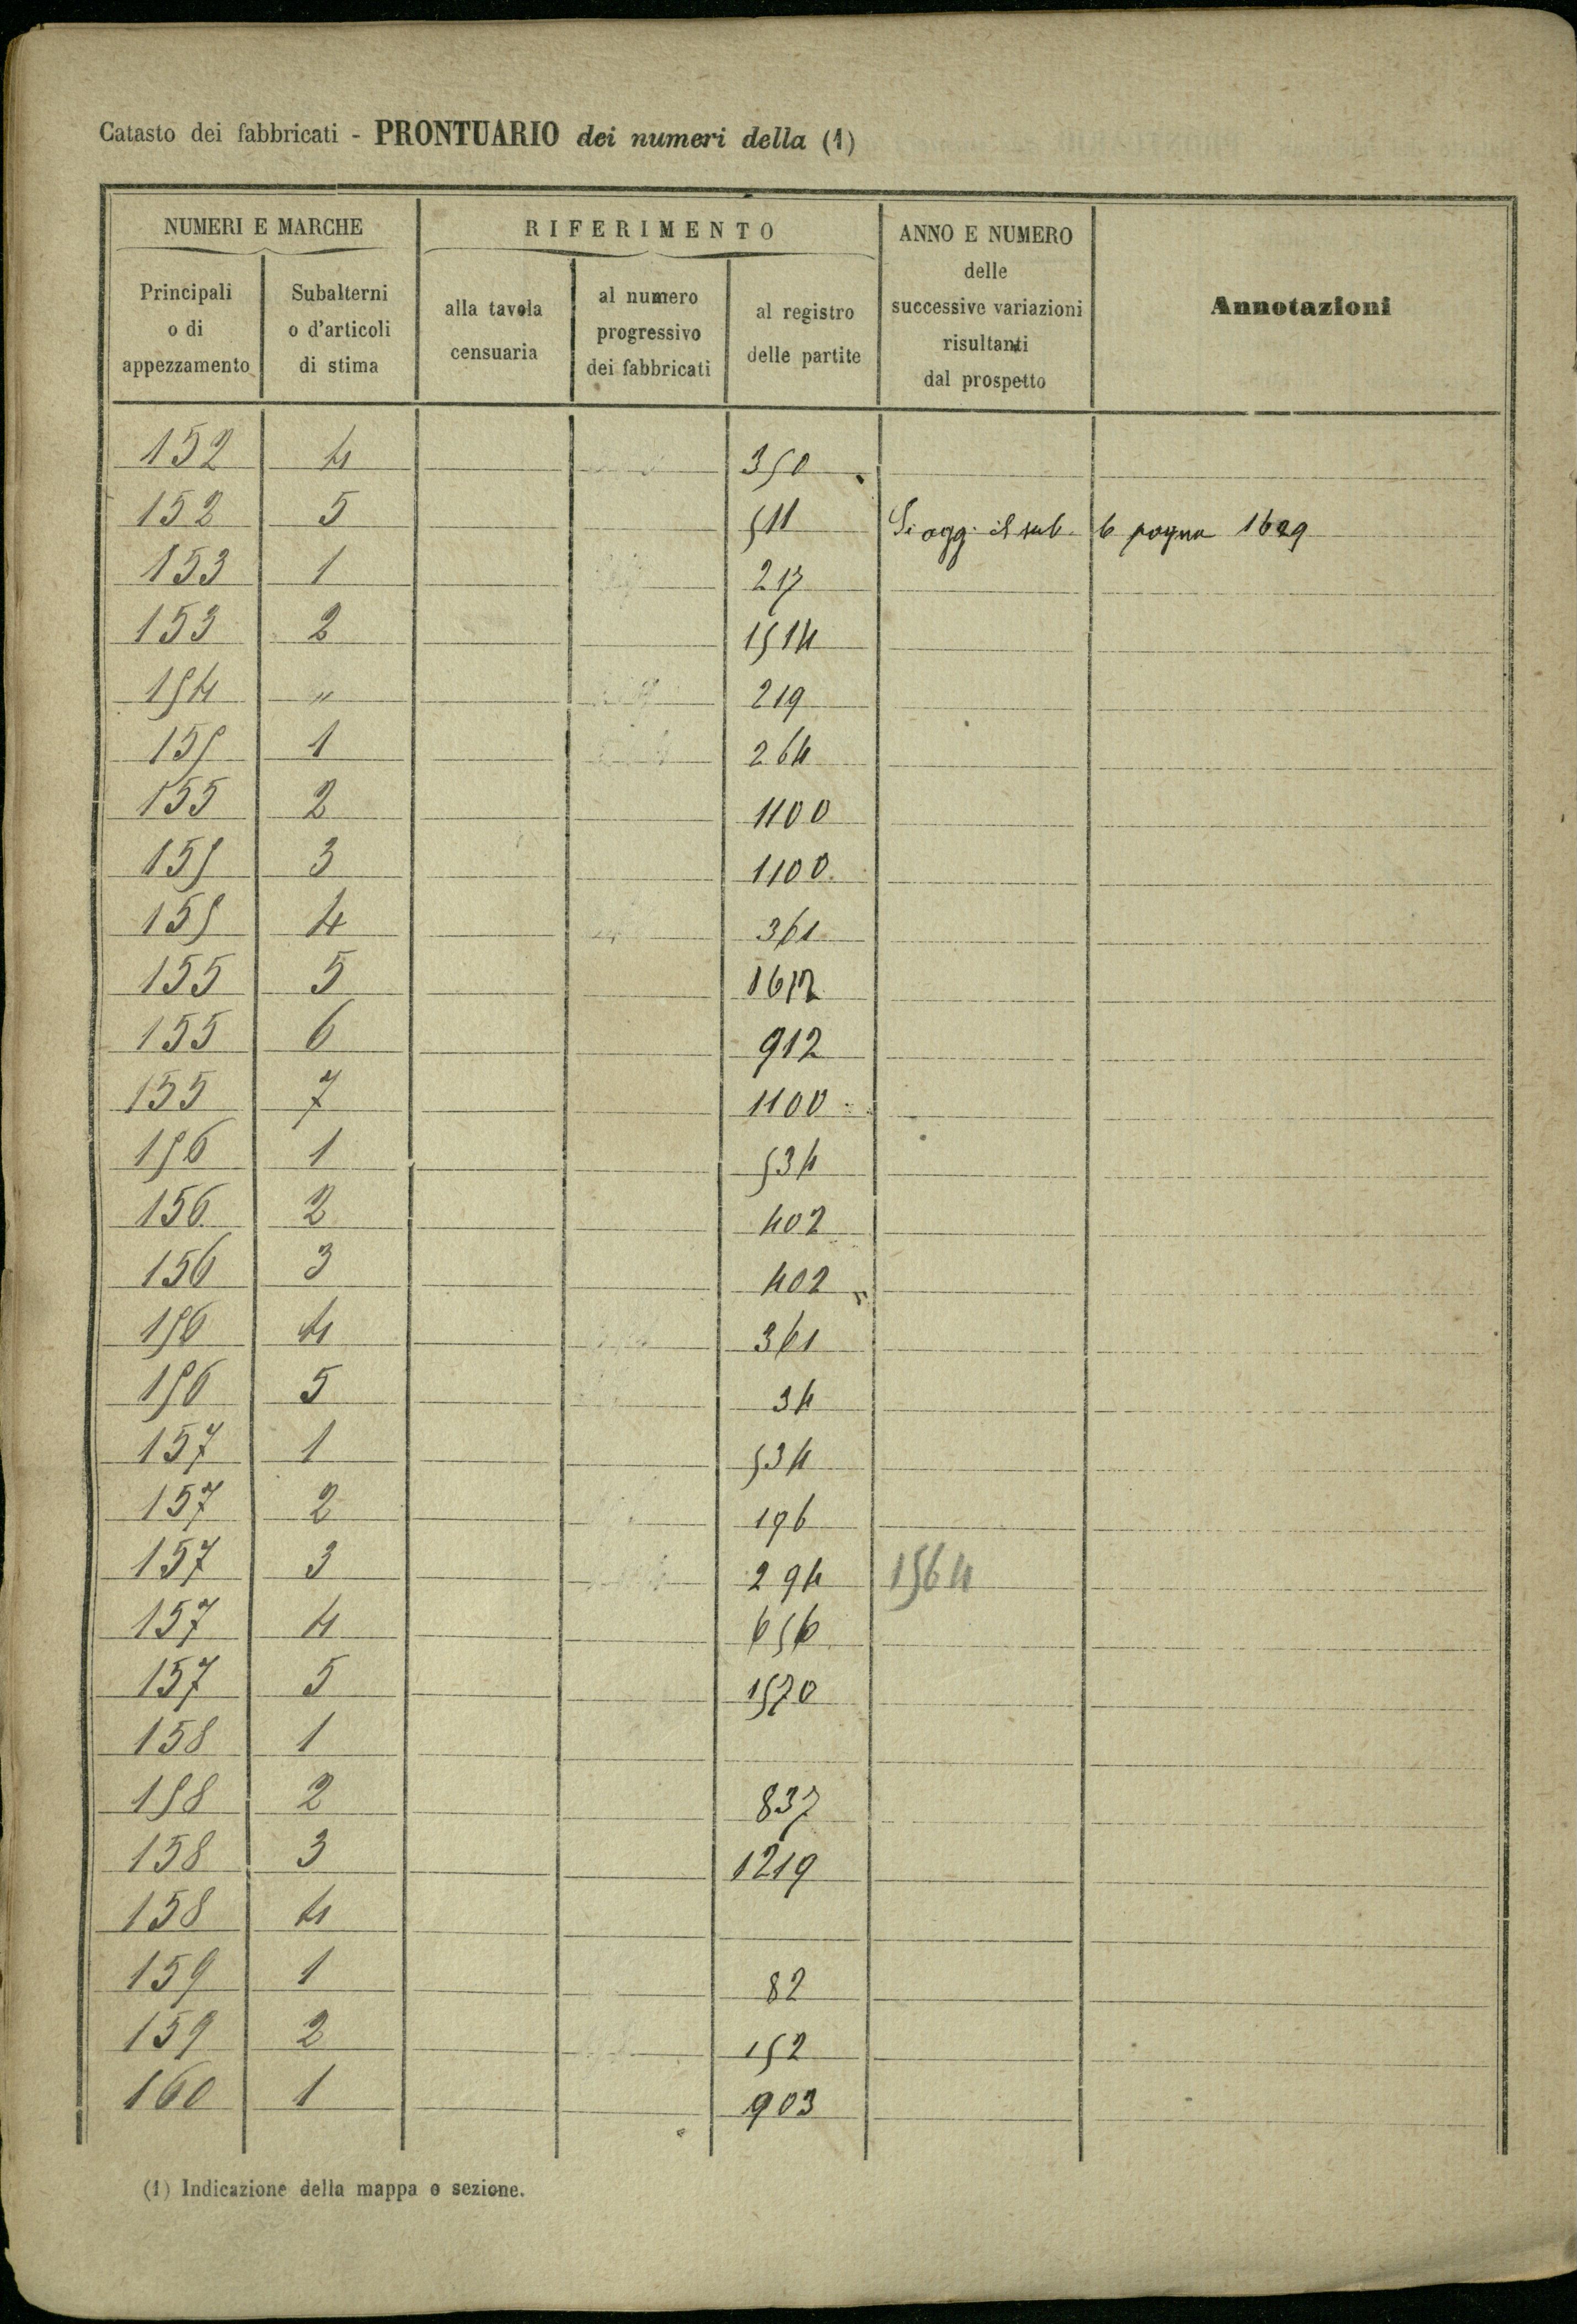 Catasto dei fabbricati - PRONTUARIO dei numeri della (1)
NUMERI E MARCHE
RIFERIMENTO
ANNO E NUMERO delle successive variazioni risultanti dal prospetto
Annotazioni
Principali o di appezzamento
Subalterni o d'articoli di stima
alla tavola censuaria
al numero progressivo dei fabbricati
al registro delle partite
152 4 350
152 5 511 Si agg. il sub. 6 pagna 1629
153 1 217
153 2 1514
154 " 219
155 1 264
155 2 1100
155 3 1100
155 4 361
155 5
155 6 912
155 7 1100
156 1 534
156 2 402
156 3 402
156 4 361
156 5 34
157 1 534
157 2 196
157 3 294 1564
157 4 656
157 5 1570
158 1
158 2 837
158 3 1219
158 4
159 1 82
159 2 152
160 1 903
(1) Indicazione della mappa o sezione.